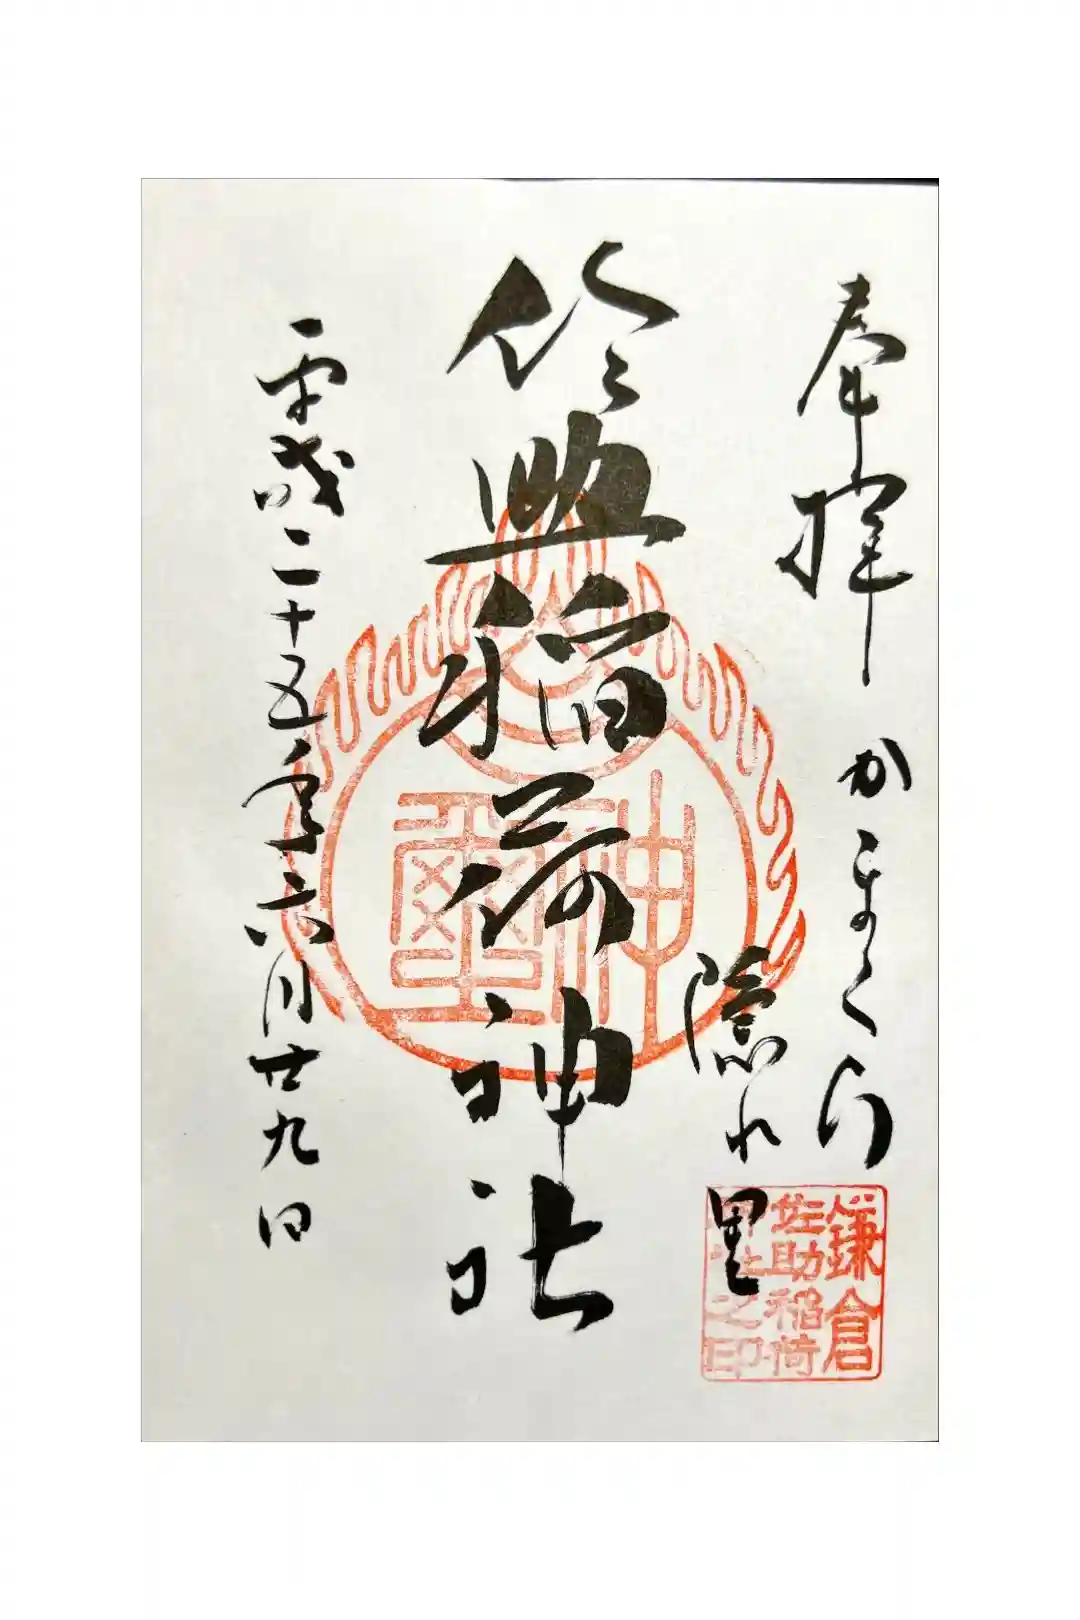 奉拝 かまくら
隠れ里
佐助稲荷神社
平成二十五年六月廿九日
神璽
鎌倉
佐助稲荷
神社之印